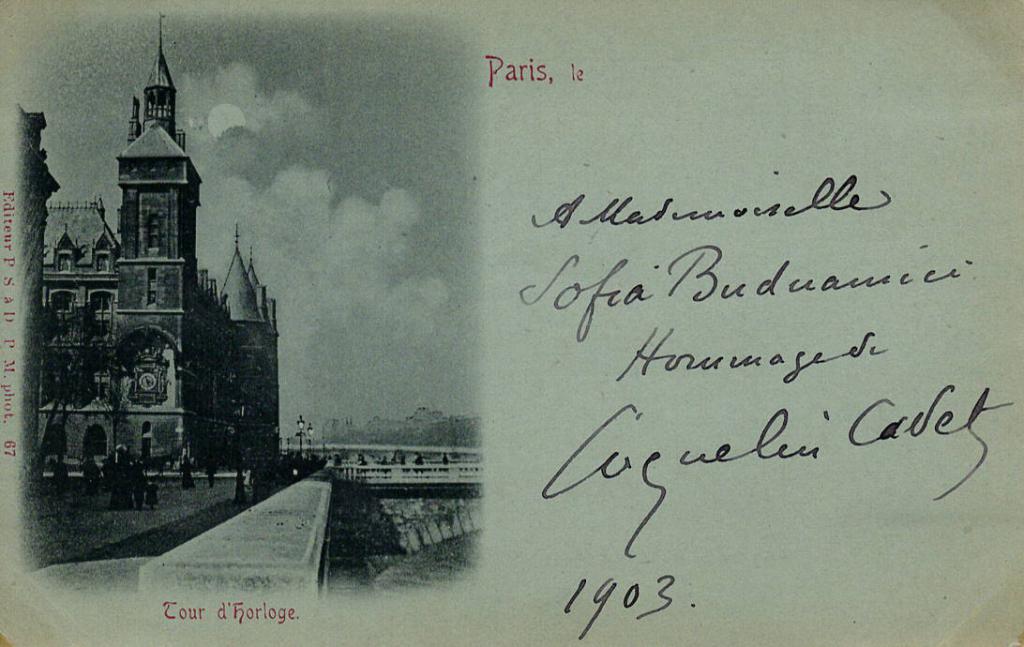 Paris, le
A Mademoiselle
Sofia Buduamici
Hommage de
Coquelin Cadet
1903.
Tour d'Horloge.
Editeur P. S. à D. P. M. phot. 67